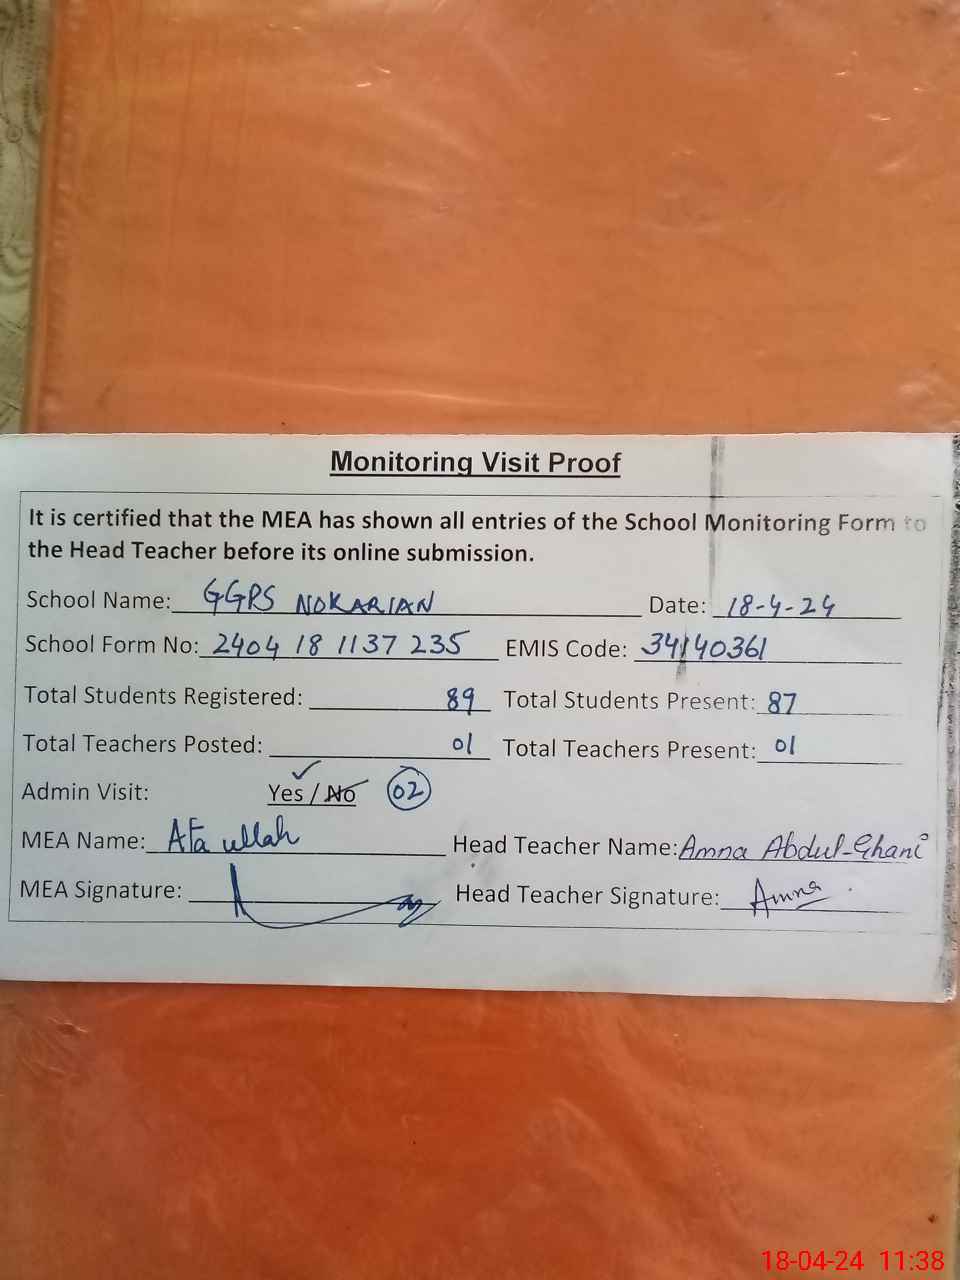 Monitoring Visit Proof
It is certified that the MEA has shown all entries of the School Monitoring Form to
the Head Teacher before its online submission.
School Name: GGPS NOKARIAN Date: 18-4-24
School Form No: 2404 18 1137 235 EMIS Code: 34140361
Total Students Registered: 89 Total Students Present: 87
Total Teachers Posted: 01 Total Teachers Present: 01
Admin Visit: Yes / No 02
MEA Name: Ata ullah Head Teacher Name: Amna Abdul-Ghani
MEA Signature: Head Teacher Signature: Amna
18-04-24 11:38